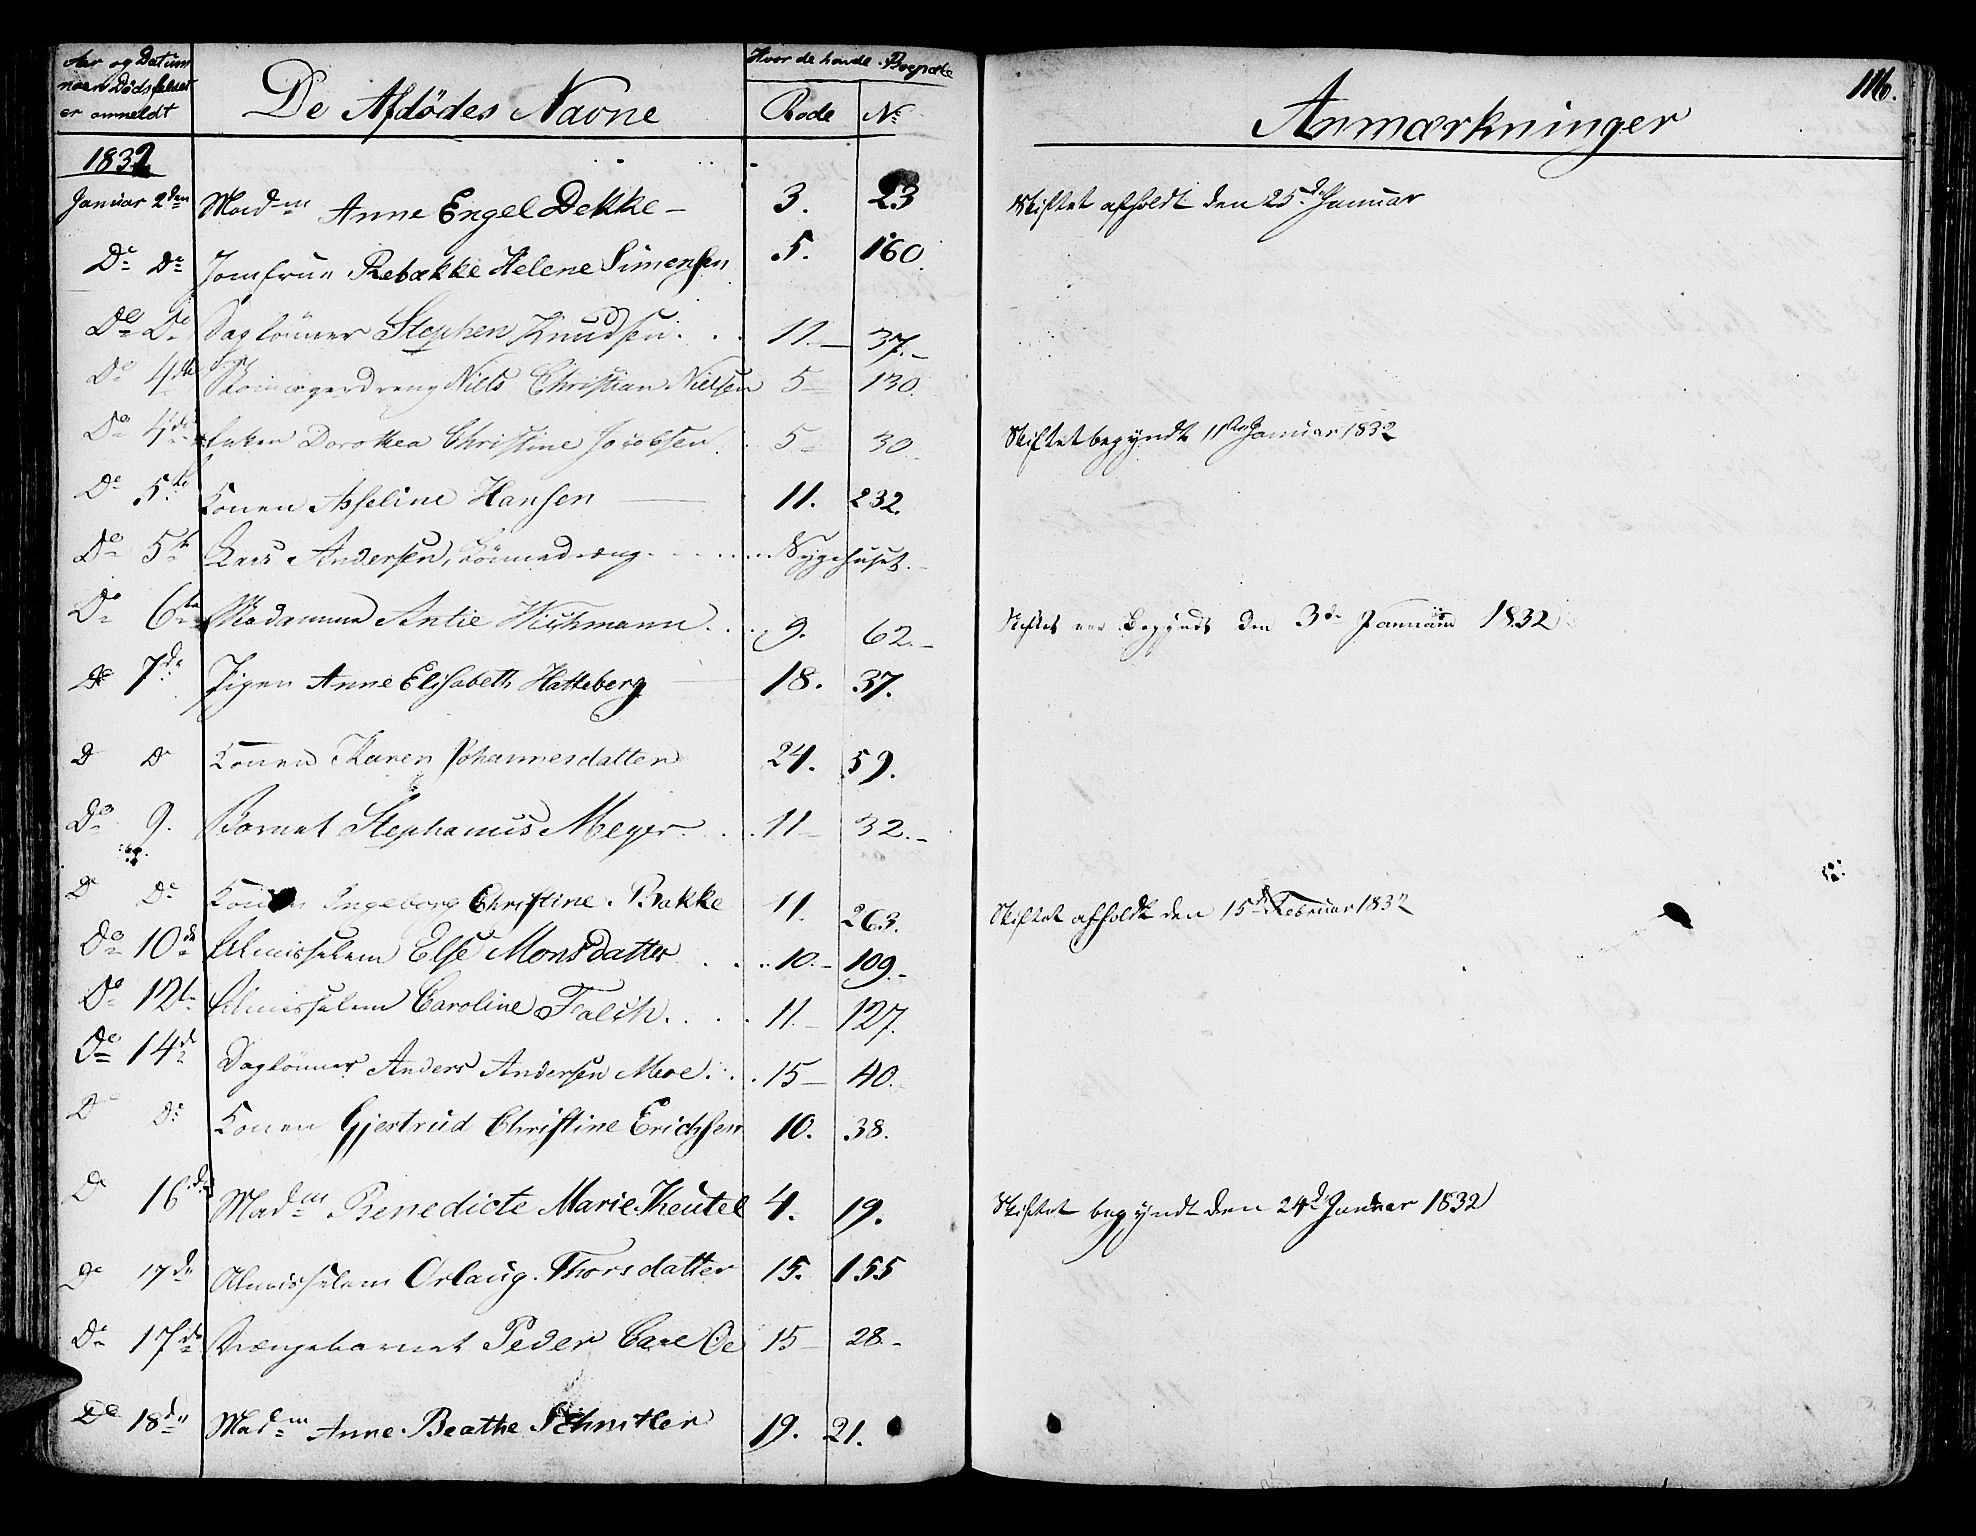 Aar og Datum
naar Dødsfaldet
er anmeldt
De Afdødes Navne
Hvor de havde Boepæle
Rode No
Anmærkninger
116.
1832
Januar 2den Madm Anne Engel Dekke - 3. 23 Skiftet afholdt den 25d Januar
Do Do Jomfrue Rebække Helene Simensen 5. 160.
Do Do Daglønner Stephen Knudsen . . 11.- 37.-
Do 4de Skomagerdreng Niels Christian Nielsen 5- 130.
Do 4de Enken Dorothea Christine Jacobsen . 5- 30. Skiftet begyndt 11te Januar 1832
Do 5te Konen Asseline Hansen 11. 232.
Do 5te Lars Andersen, Tønnedreng . . . . . Sygehuset.-
Do 6te Madamme Antie Wichmann . . . 9. 62.- Skiftet var begyndt den 3de Januar 1832
Do 7de Pigen Anne Elisabeth Hatteberg 18. 37.
D D Konen Karen Johannesdatter 24. 59.
Do 9. Barnet Stephanus Meyer . . 11- 32.-
Do Do Konen Ingeborg Christine Bakke 11. 263. Skiftet afholdt den 15d Februar 1832
Do 10de Almisselem Else Monsdatter . . . . 10.- 109.-
Do 12te Almisselem Caroline Falch . . . . 11.- 127.
Do 14de Daglønner Anders Andersen Moe . . . 15- 40.
D Do Konen Gjertrud Christine Erichsen 10. 38.
D 16de Madm Benedicte Marie Keutel 4. 19. Skiftet begyndt den 24d Januar 1832
Do 17de Almisselem Orlaug Thorsdatter 15. 155
Do 17de Drængebarnet Peder Carl Oe 15- 28-
Do 18de Madm Anne Beathe Schnitler 19. 21.